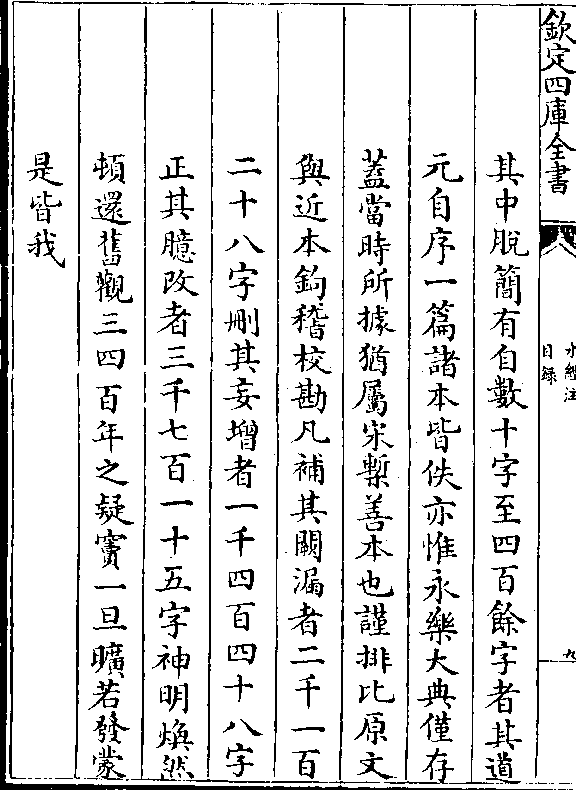 欽定四庫全書
水經注
目録
九
其中脫簡有自數十字至四百餘字者其道
元自序一篇諸本皆佚亦惟永樂大典僅存
蓋當時所據猶屬宋槧善本也謹排比原文
與近本鉤稽校勘凡補其闕漏者二千一百
二十八字刪其妄增者一千四百四十八字
正其臆改者三千七百一十五字神明煥然
頓還舊觀三四百年之疑竇一旦曠若發蒙
是皆我